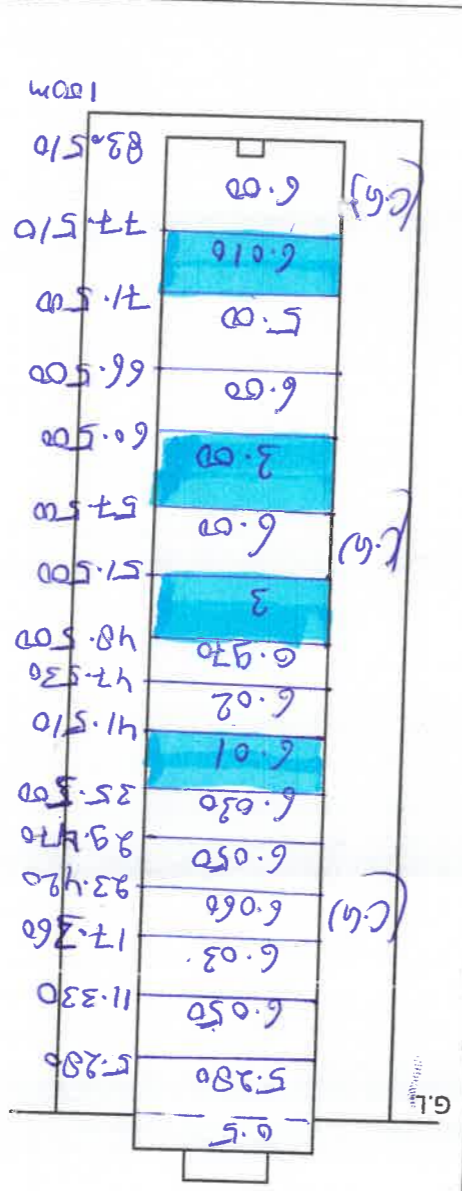 0.5
G.L
5.280 5.280
6.050 11.330
6.03 17.360
(C.G) 6.060 23.420
6.050 29.470
6.030 35.500
6.01 41.510
6.02 47.530
0.970 48.500
3 51.500
(C.G) 6.00 57.500
3.00 60.500
6.00 66.500
5.00 71.500
6.010 77.510
(C.G) 6.00 83.510